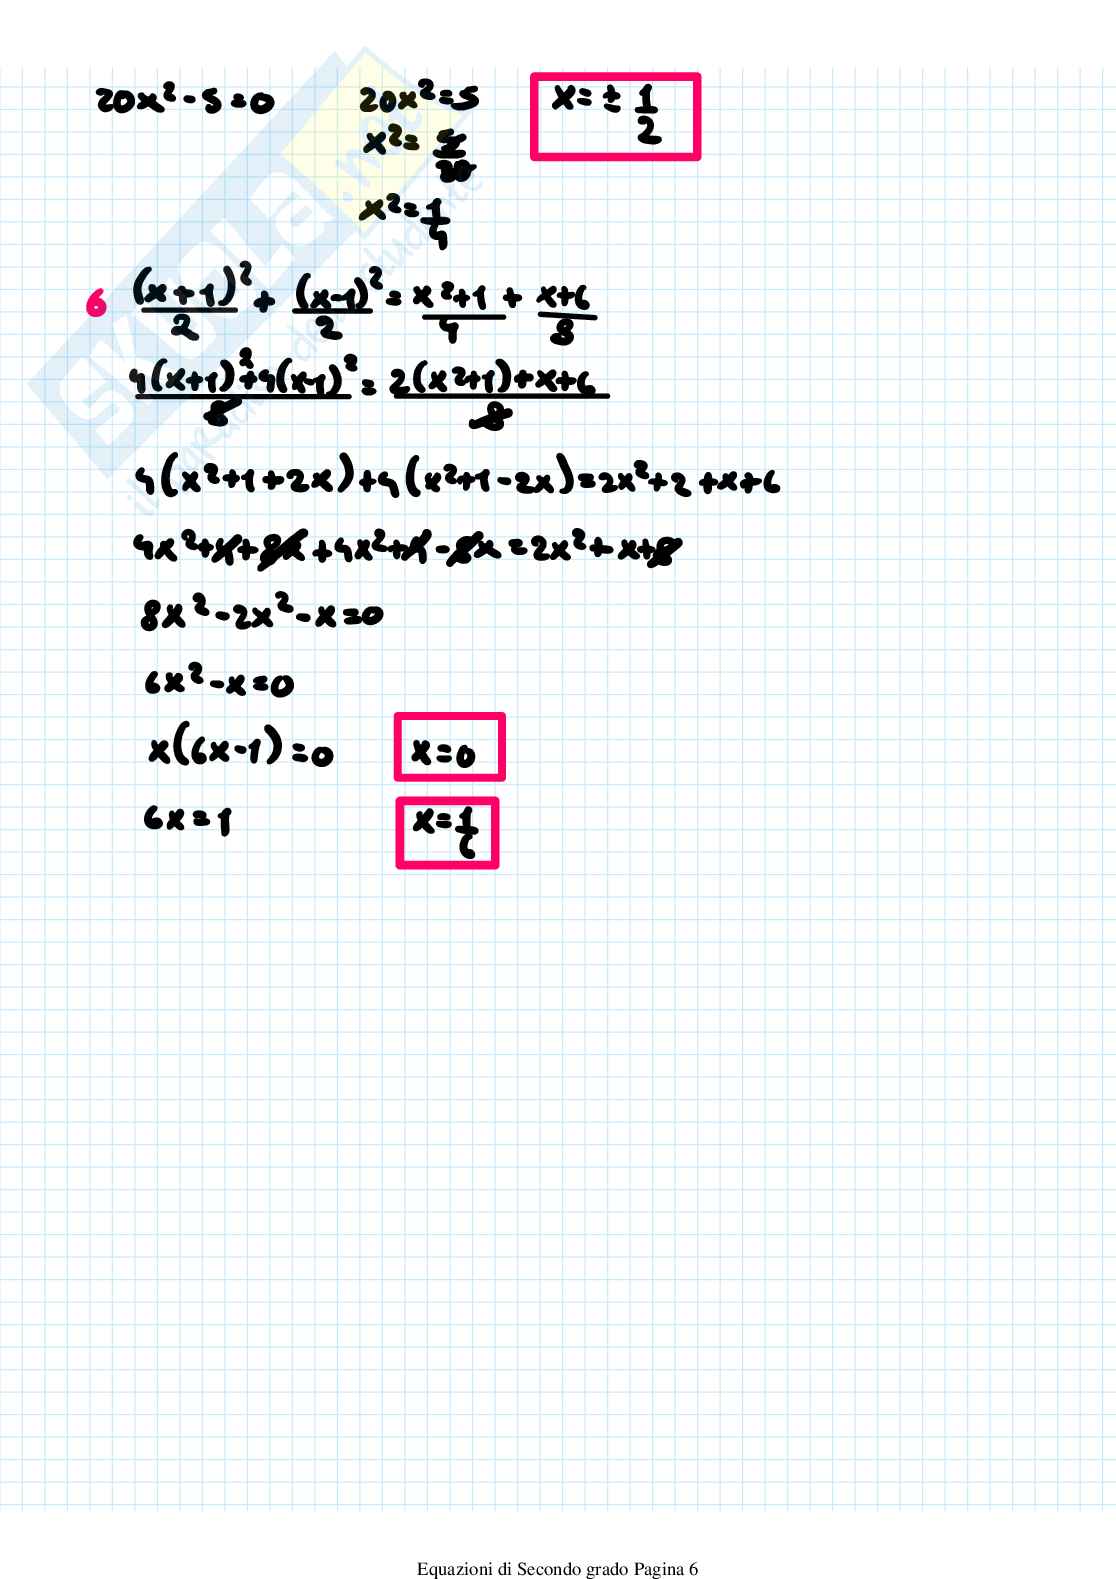 20x²-5=0
20x²=5
x²=5/20
x²=1/4
x=±1/2
6 (x+1)²/2 + (x-1)²/2 = x²+1/4 + x+6/8
4(x+1)²+4(x-1)²/8 = 2(x²+1)+x+6/8
4(x²+1+2x)+4(x²+1-2x)=2x²+2+x+6
4x²+4+8x+4x²+4-8x=2x²+x+8
8x²-2x²-x=0
6x²-x=0
x(6x-1)=0
x=0
6x=1
x=1/6
SKUOLA.net
Equazioni di Secondo grado Pagina 6